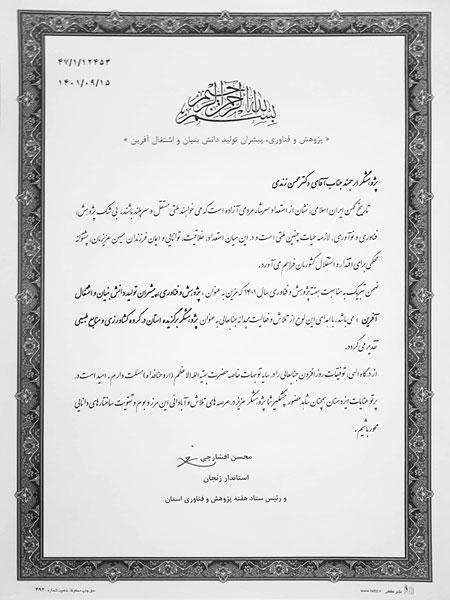 ۴۷/۱/۱۲۴۵۳
۱۴۰۱/۰۹/۱۵
بسم الله الرحمن الرحیم
« پژوهش و فناوری، پیشران تولید دانش بنیان و اشتغال آفرین »
پژوهشگر ارجمند جناب آقای دکتر محسن زندی
تاریخ کهن ایران اسلامی، نشان از استعداد سرشار مردمی آزاده است که می خواهند ملتی مستقل و سربلند باشند. بی شک پژوهش،
فناوری و نوآوری، لازمه حیات چنین ملتی است و در این میان استعداد، خلاقیت، توانایی و ایمان فرزندان میهن عزیزمان، پشتوانه
محکمی برای اقتدار و استقلال کشورمان فراهم می آورد.
ضمن تبریک به مناسبت هفته پژوهش و فناوری سال ۱۴۰۱ که مزین به عنوان «پژوهش و فناوری، پیشران تولید دانش بنیان و اشتغال
آفرین» می باشد، با اهدای این لوح از تلاش و فعالیت مجدانه جنابعالی به عنوان پژوهشگر برگزیده استان در گروه کشاورزی و منابع طبیعی
تقدیر می گردد.
از درگاه الهی، توفیقات روز افزون جنابعالی را در سایه توجهات خاصه حضرت بقیه الله الاعظم (ارواحنا فداه) مسئلت دارم. امید است در
پرتو عنایات ایزد منان همچنان شاهد حضور چشمگیر شما پژوهشگر عزیز در عرصه های تلاش و آبادانی این مرز و بوم و تقویت ساختارهای دانایی
محور باشیم.
محسن افشارچی
استاندار زنجان
و رئیس ستاد هفته پژوهش و فناوری استان